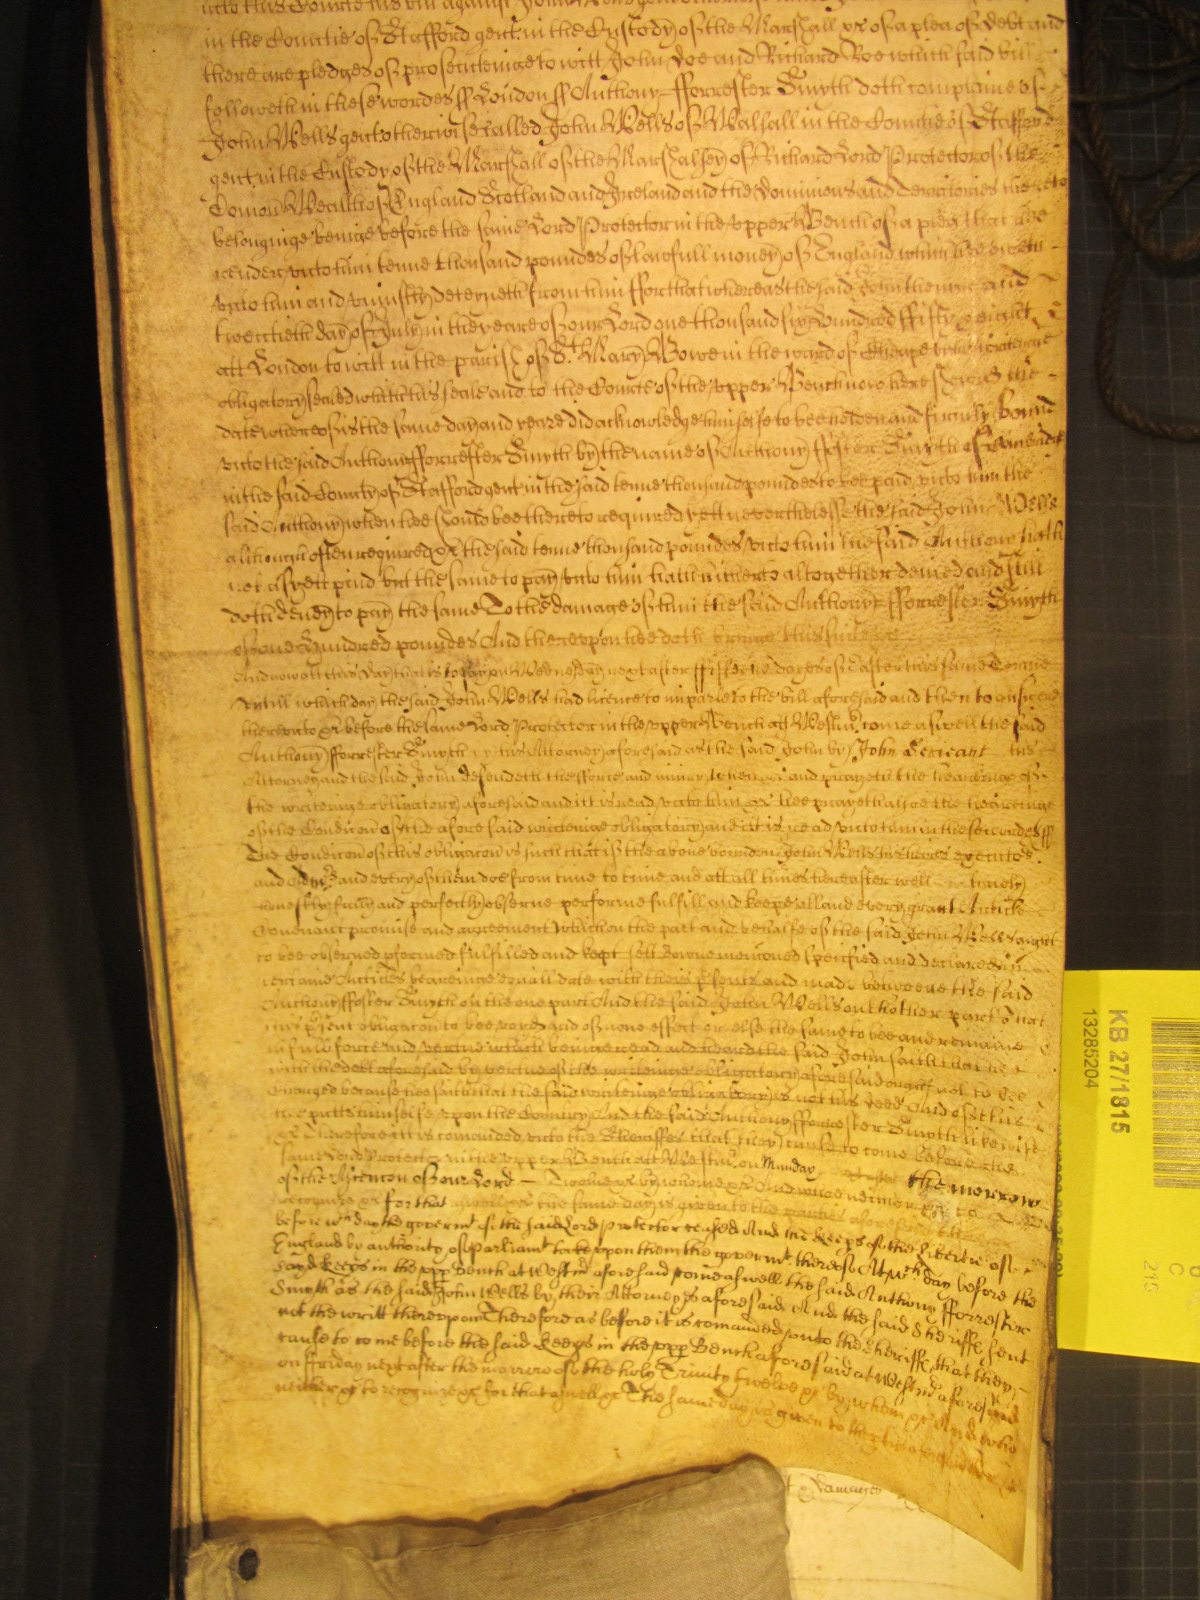 unto this Courte his bill against John Wells gent otherwise
in the Countie of Stafford gent. in the Custody of the Marshall &c of a plea of debt and
there are pledges of prosecuteinge to witt John Doe and Richard Roe which said bill
followeth in these wordes ss London ss Anthony Fforrester Smyth doth complaine of
John Wells gent otherwise called John Wells of Walsall in the Countie of Stafford
gent in the Custody of the Marshall of the Marshalsey of Richard Lord Protector of the
Comon Wealth of England Scotland and Ireland and the Dominions and Territories thereto
belonginge beinge before the same Lord Protector in the upper Bench of a plea that hee
render unto him tenne thousand poundes of lawfull money of England which hee oweth
unto him and unjustly deteyneth from him ffor that whereas the said John the nyne and
twentieth day of July in the yeare of our Lord one thousand six hundred ffifty eight
att London to witt in the parish of St. Mary Bowe in the ward of Cheape by his writeinge
obligatory sealed with his seale and to the Courte of the upper Bench now here shewed the
date whereof is the same day and yeare did acknowledge himselfe to bee holden and firmly bound
unto the said Anthony Fforrester Smyth by the name of Anthony ffoster Smyth of
in the said County of Stafford gent in the said tenne thousand poundes to bee paid unto him the
said Anthony when hee should bee thereto required yett neverthelesse the said John Wells
although often required &c the said tenne thousand poundes unto him the said Anthony hath
not as yett paid but the same to pay unto him hath hitherto altogether denied and still
doth deny to pay the same To the damage of him the said Anthony Fforrester Smyth
of one hundred poundes And thereupon hee doth bringe this suite &c
And now att this day that is to say on Wednesday next after ffifteene dayes of Easter this same Terme
untill which day the said John Wells had licence to imparle to the bill aforesaid and then to answere
thereunto &c before the same Lord Protector in the upper Bench att Westmr. come aswell the said
Anthony Fforrester Smyth by his Attorney aforesaid as the said John by John Serieant his
Attorney and the said John defendeth the fforce and iniury when &c and prayeth the heareinge of
the writeinge obligatory aforesaid and itt is read unto him &c hee prayeth alsoe the heareinge
of the Condicon of the aforesaid writeinge obligatory and itt is read unto him in these wordes ss
The Condicon of this obligacon is such that if the above bounden John Wells his heires executors
and admrs and every of them doe from time to time and att all times hereafter well truely
honestly fully and perfectly observe performe fulfill and keepe all and every grant Article
Covenant promise and agreement which on the part and behalfe of the said John Wells ought
to bee observed pformed fulfilled and kept sett downe mencioned specified and declared in
certaine Articles beareinge equall date with theis psents and made betweene the said
Anthony ffoster Smyth on the one part And the said John Wells on thother part That
this psent obligacon to bee voyd and of none effect or else the same to bee and remaine
in full force and vertue which beinge read and heard the said John saith that hee
with the debt aforesaid by vertue of the writeinge obligatory aforesaid ought not to bee
charged because hee saith that the said writeinge obligatory is not his deed And of this
hee putts himselfe upon the Country And the said Anthony Fforrester Smyth likewise
&c Therefore itt is comanded unto the Sheriffes that they cause to come before the
same Lord Protector in the upper Bench att Westmr. on Munday the morrow
of the Ascencion of our Lord Twelve &c by whome &c And whoe neither &c to
recognize &c for that aswell &c the same day is given to the parties aforesaid
before wch day the govermt of the said Lord Protector ceased And the Keeps of the liberties of
England by authority of Parliamt tooke upon them the govermt thereof Att wch day before the
sayd Keeps in the upp Bench at Westmr aforesaid come aswell the said Anthony Fforrester
Smyth as the said John Wells by their Attorneys aforesaid And the said Sheriffe sent
not the writt thereupon Therefore as before it is comanded unto the Sheriffe that they
cause to come before the said Keeps in the upp Bench aforesaid at Westmr aforesaid
on Ffriday next after the morrow of the holy Trinity twelve &c by whom &c And who
neither &c to recognize &c for that aswell &c The same day is given to the
Damages
KB 27/1815
13285204